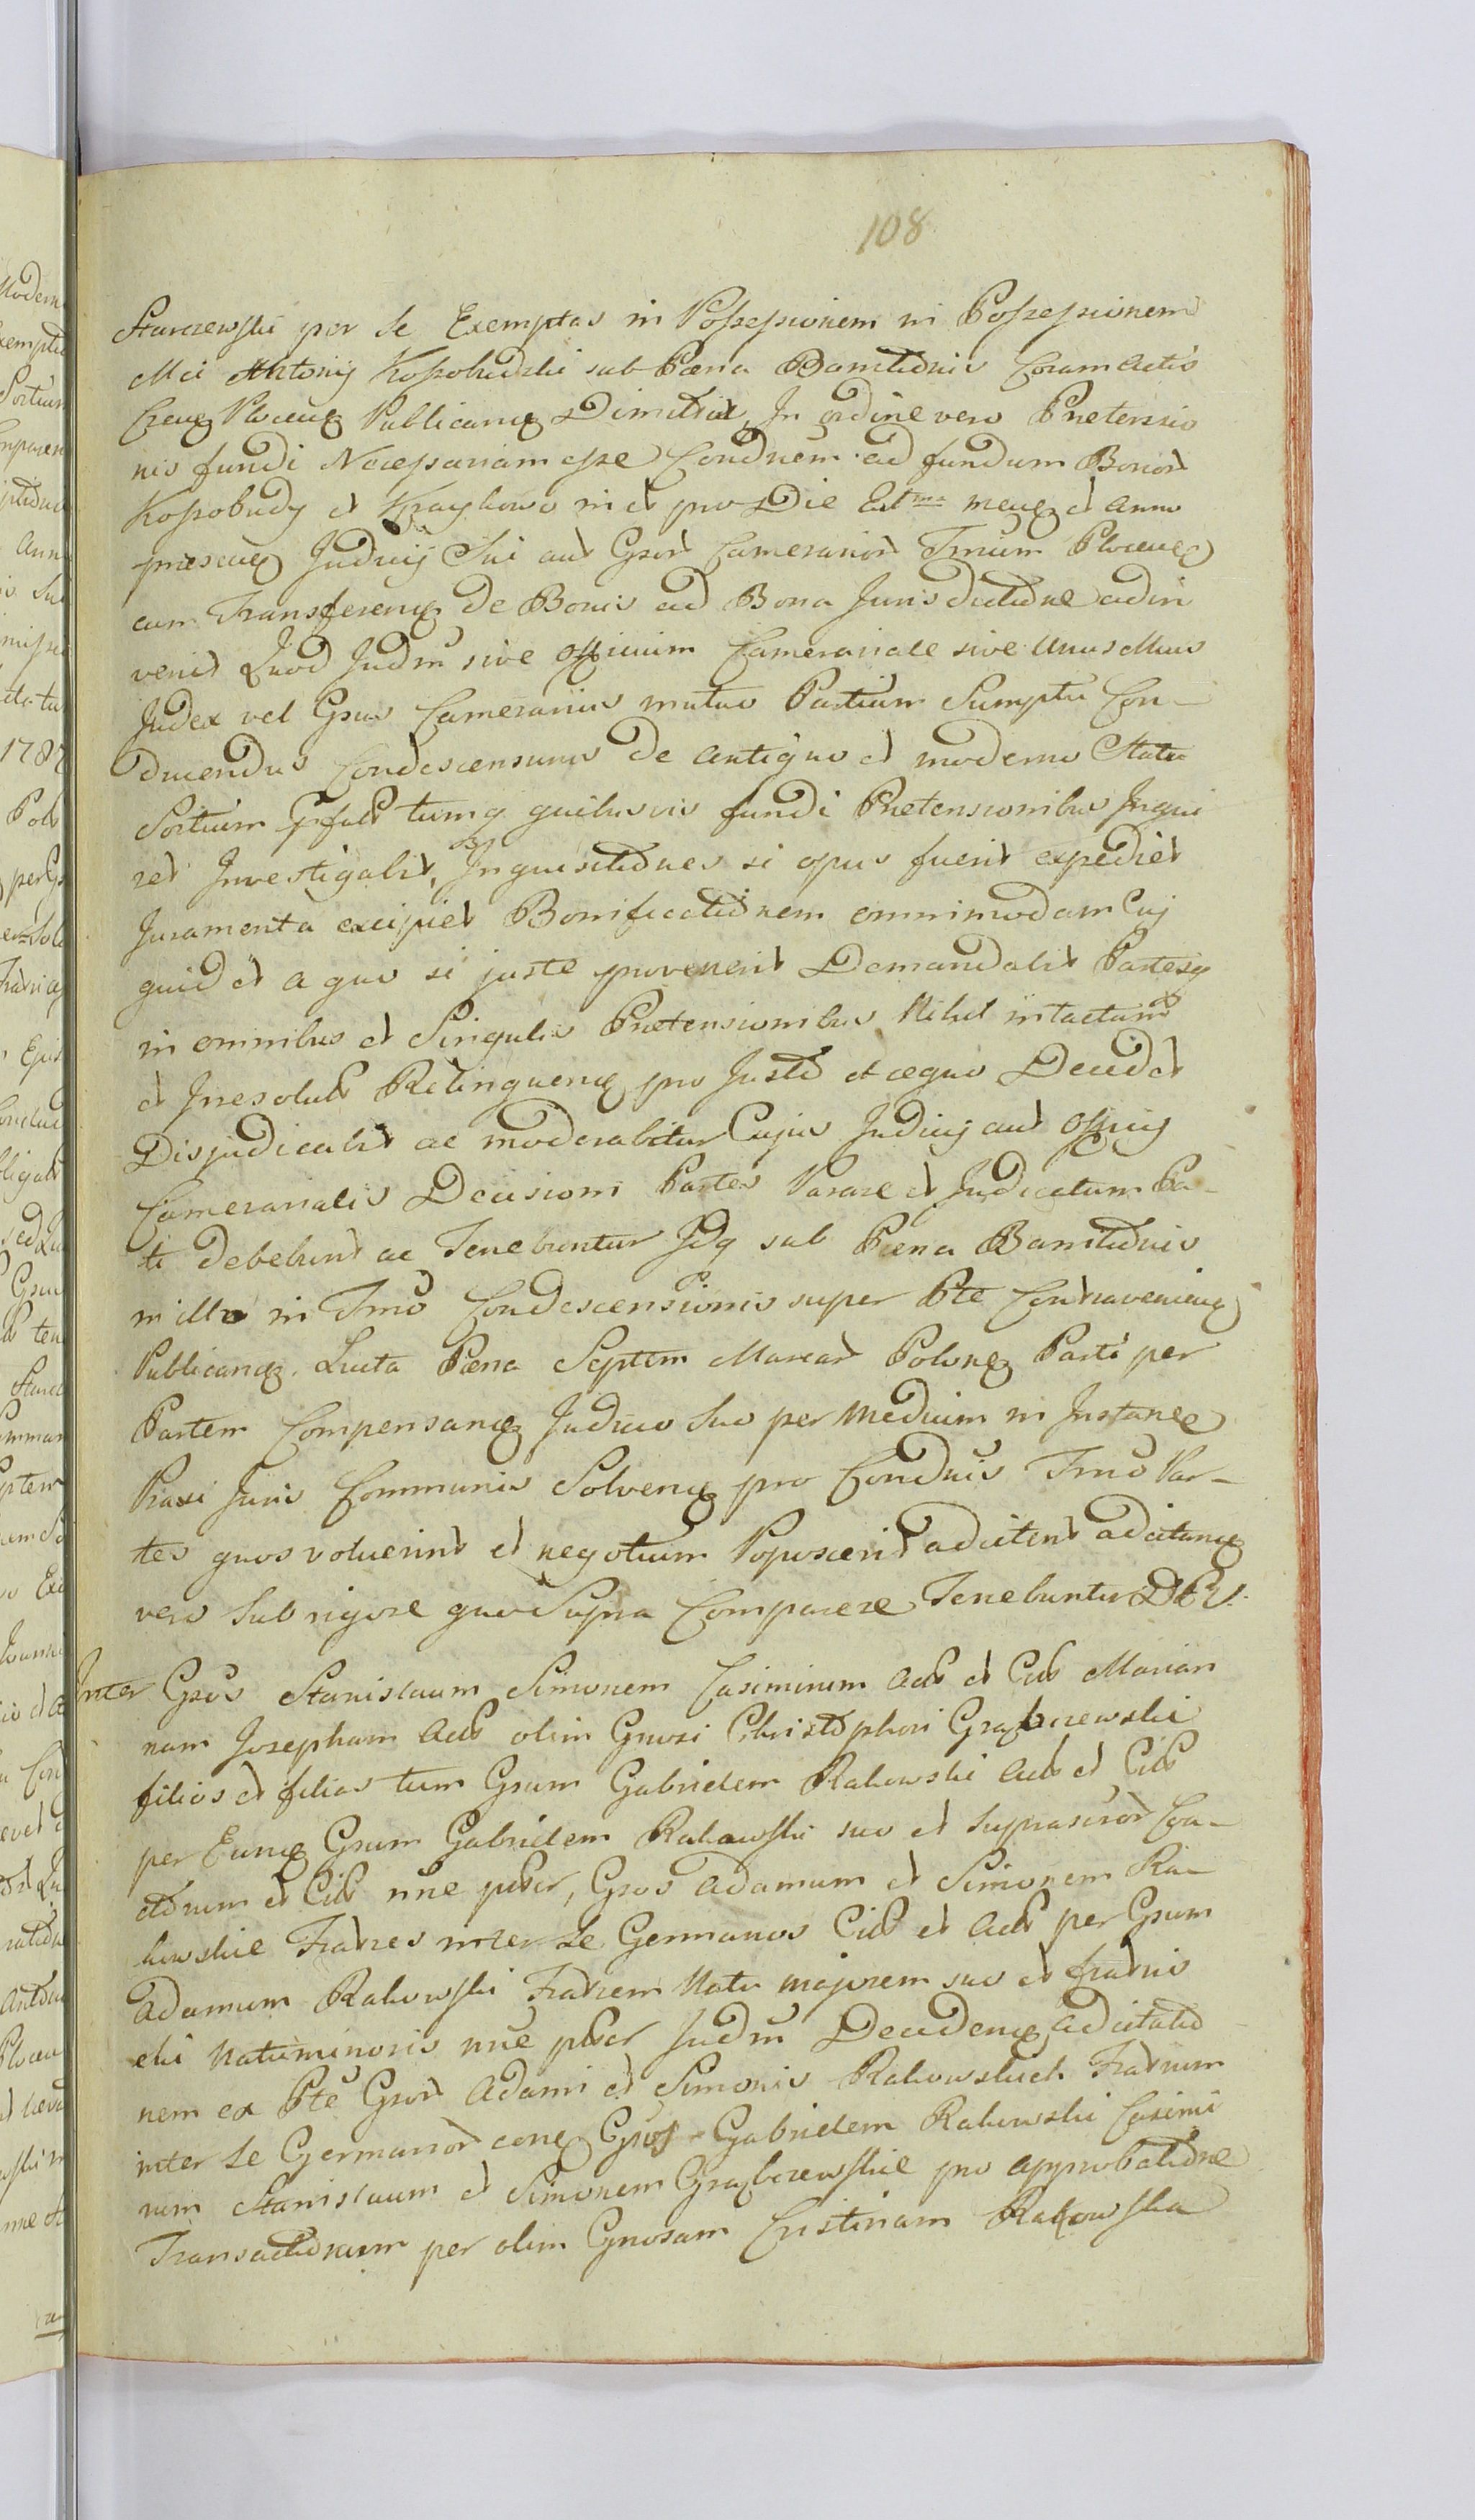 108
Starczewski per se Exemptas in Possessionem in Possessionem
Mci Antonij Kossobudzki sub Pœna Bannitionis Coram Actis
Crens Plocens Publicanda Dimittat, In ordine vero Prætensio
nis fundi Necessariam esse Condnem ad fundum Bonor
Kossobudy et Kraykowo in et pro Die mens et anno
præsens Judicij Sui aut Gsor Camerarior Trrium Plocens
cum Transferens de Bonis ad Bona Jurisdictione adin
venit Quod Judm sive Officium Camerariale sive Unus Mcus
Judex vel Gsus Camerarius mutuo Partium Sumptu Con-
ducendus Condescensurus de antiquo et moderno Statu
Sortium tumq quibusvis fundi Prætensionibus Inqui
ret Investigabit, Inquisitiones si opus fuerit expediet
Juramenta excipiet Bonificationem omnimodam Cuj
quid et a quo si juste provenerit Demandabit Partesq
in omnibus et Singulis Prætensionibus Nihil intactum
et Irresolut Relinquens pro Justo et æquo Decidet
Disjudicabit ac moderabitur Cujus Judicij aut Officij
Camerarialis Decisioni Partes Parare et Judicatum Pa-
ti debebunt ac Tenebuntur Idq sub Pœna Bannitionis
in illo in Trmo Condescensionis super Pte Contraveniens
Publicand. Lucta Pœna Septem Marcar Polons Parti per
Partem Compensand Judicio Suo per Medium in Instanti
Praxi Juris Communis Solvend pro Condnis Trmo Par-
tes quos voluerint et negotium Poposcerit adcitent adcitand
vero Sub rigore quo Supra Comparere Tenebuntur DPV.
Inter Gsos Stanislaum Simonem Casimirum Act et Cit Marian
nam Josepham Act olim Gnrosi Christophori Grąbczewski
filios et filias tum Gsum Gabrielem Rakowski Act et Cit
per Eund Gsum Gabrielem Rakowski suo et suprascror Coa-
ctorum et Cit nne pscr, Gsos Adamum et Simonem Ra-
kowskie Fratres inter se Germanos Cit et Act per Gsum
Adamum Rakowski Fratrem Natu majorem suo et fratris
sui Natu minoris nne pscr Judm Decidens adcitatio
nem ex Pte Gsor Adami et Simonis Rakowskich Fratrum
inter se Germanor cong Gsos Gabrielem Rakowski Casimi
rum Stanislaum et Simonem Grąbczewskie pro approbatione
Transactionum per olim Gnrosam Cristinam Rakowska